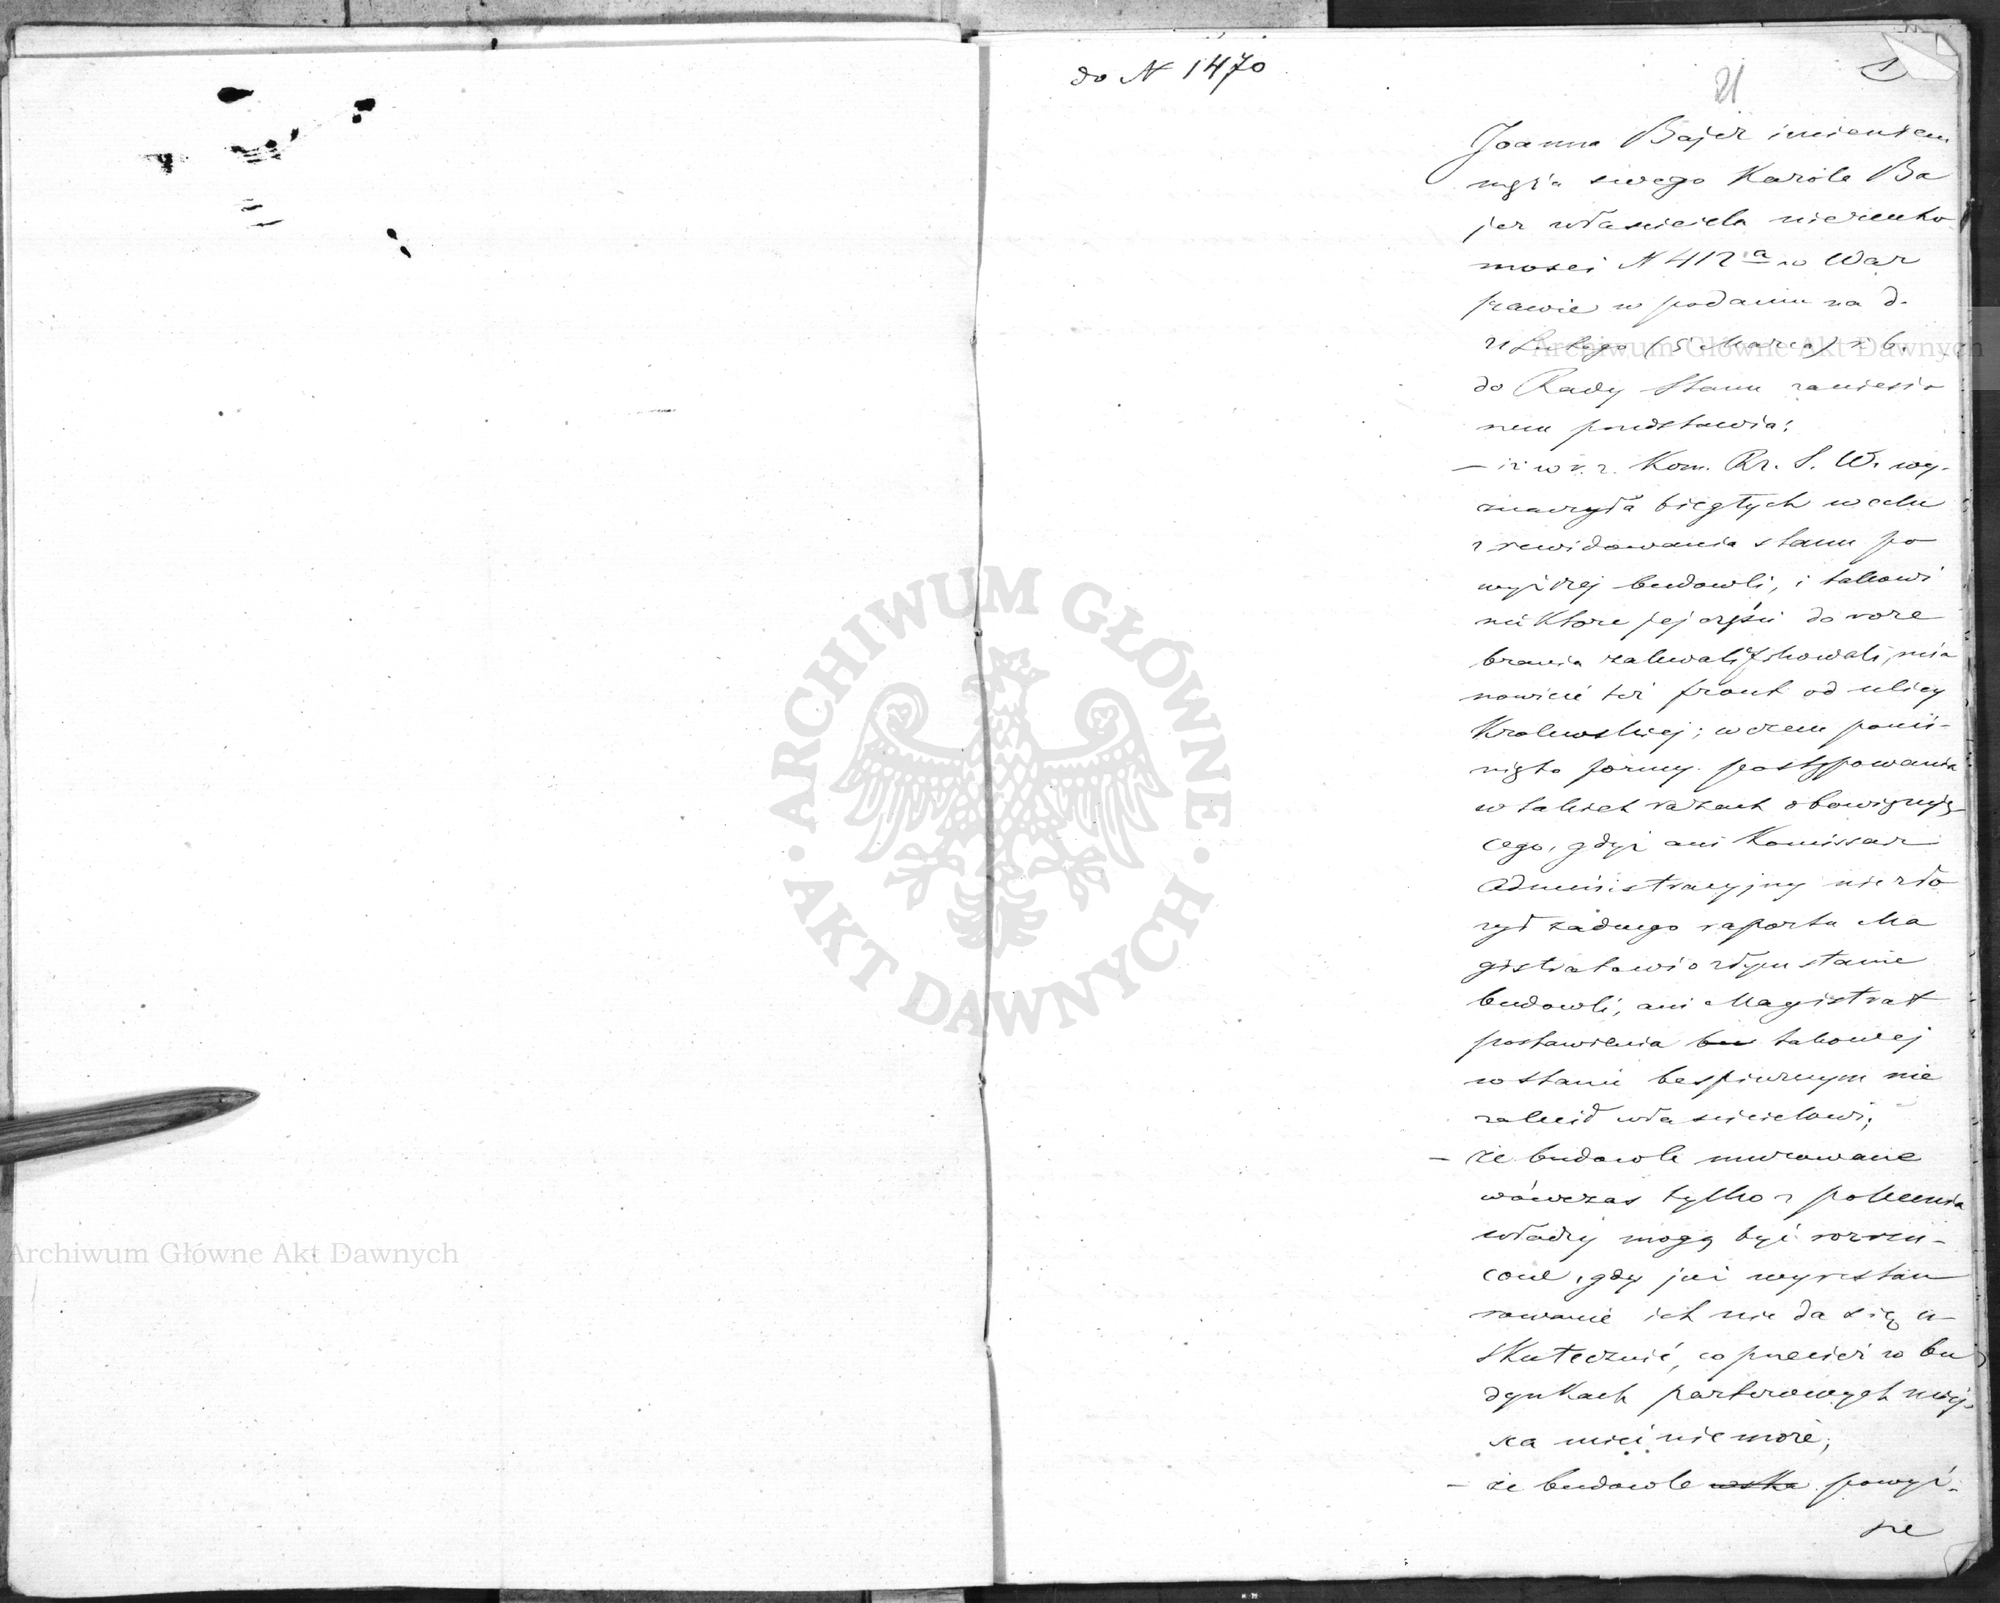 do N 1470
21
1
Joanna Bajer imieniem
męża swego Karola Ba
jer właściciela nierucho-
mości N 412 a w War
szawie w podaniu na d.
21 Lutego (5 Marca) r. b.
do Rady Stanu zaniesio
nem przedstawia:
— iż w z. r. Kom. Rz. S. W. wy-
znaczyła biegłych w celu
zrewidowania stanu po
wyższej budowli, i takowi
niektóre jej części do roze
brania zakwalifikowali, mia
nowicie też front od ulicy
Królewskiej; w czem pomi-
nięto formy postępowania
w takich razach obowiązują
cego, gdyż ani Komissarz
Administracyjny nie zło
żył żadnego raportu Ma
gistratowi o złym stanie
budowli, ani Magistrat
postawienia takowej
w stanie bespiecznym nie
zalecił właścicielowi;
— że budowle murowane
wówczas tylko z polecenia
władzy mogą być rozrzu-
cone, gdy już wyrestau
rowanie ich nie da się u-
skutecznić, co przecież w bu
dynkach parterowych miej-
sca mieć nie może;
— że budowle powyż-
sze
Archiwum Główne Akt Dawnych
ARCHIWUM GŁÓWNE
AKT DAWNYCH
Archiwum Główne Akt Dawnych